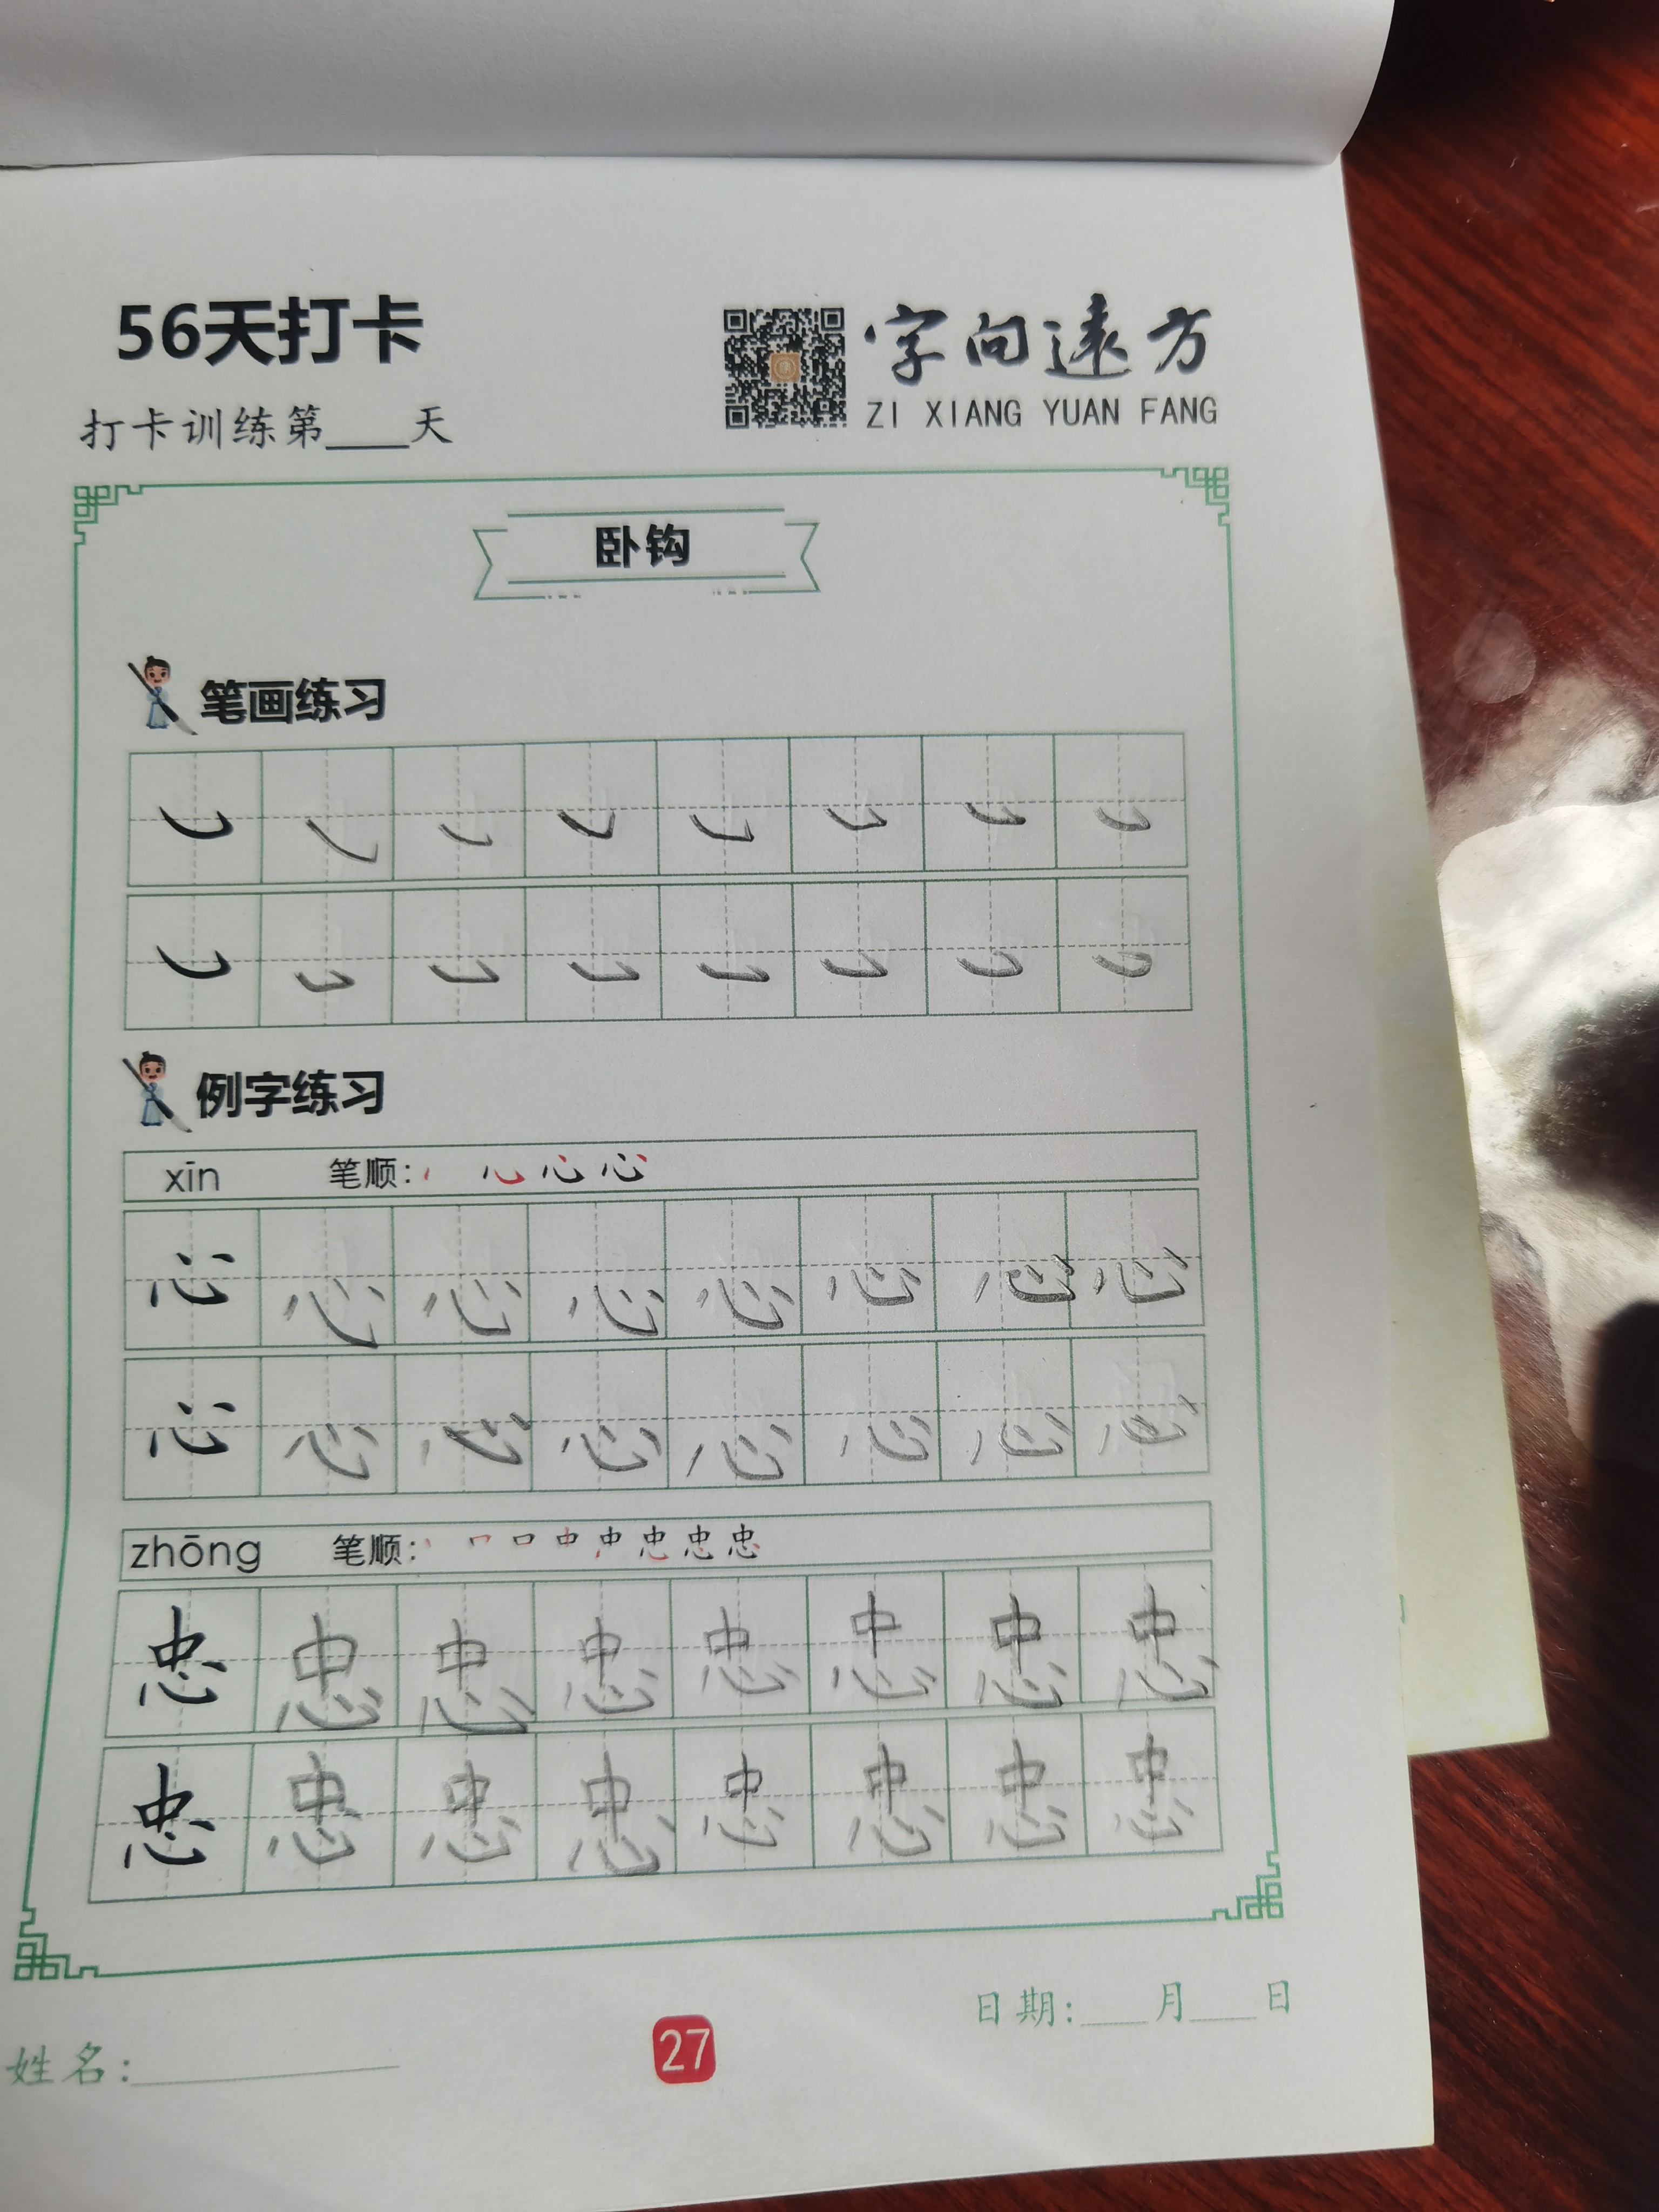 56天打卡
字向远方
ZI XIANG YUAN FANG
打卡训练第____天
卧钩
笔画练习
例字练习
xīn 笔顺：
心 心 心 心 心 心 心 心
心 心 心 心 心 心 心 心
zhōng 笔顺：
忠 忠 忠 忠 忠 忠 忠 忠
忠 忠 忠 忠 忠 忠 忠 忠
日期：____月____日
姓名：____
27